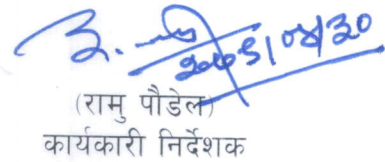 २०७९/०४/३०
(रामु पौडेल)
कार्यकारी निर्देशक